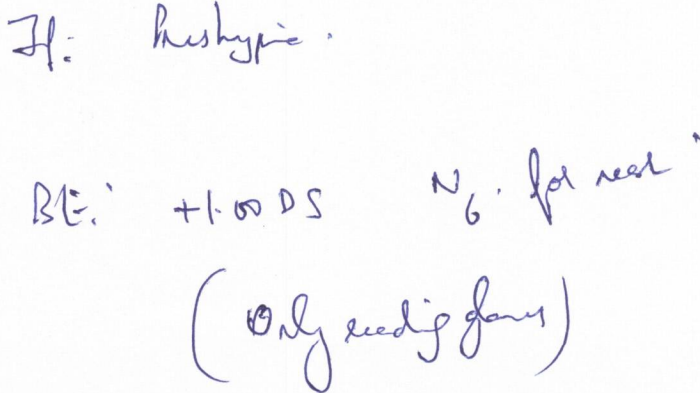 If: Presbyopia.
BE: +1.00 DS N6. for near
(Only reading glasses)